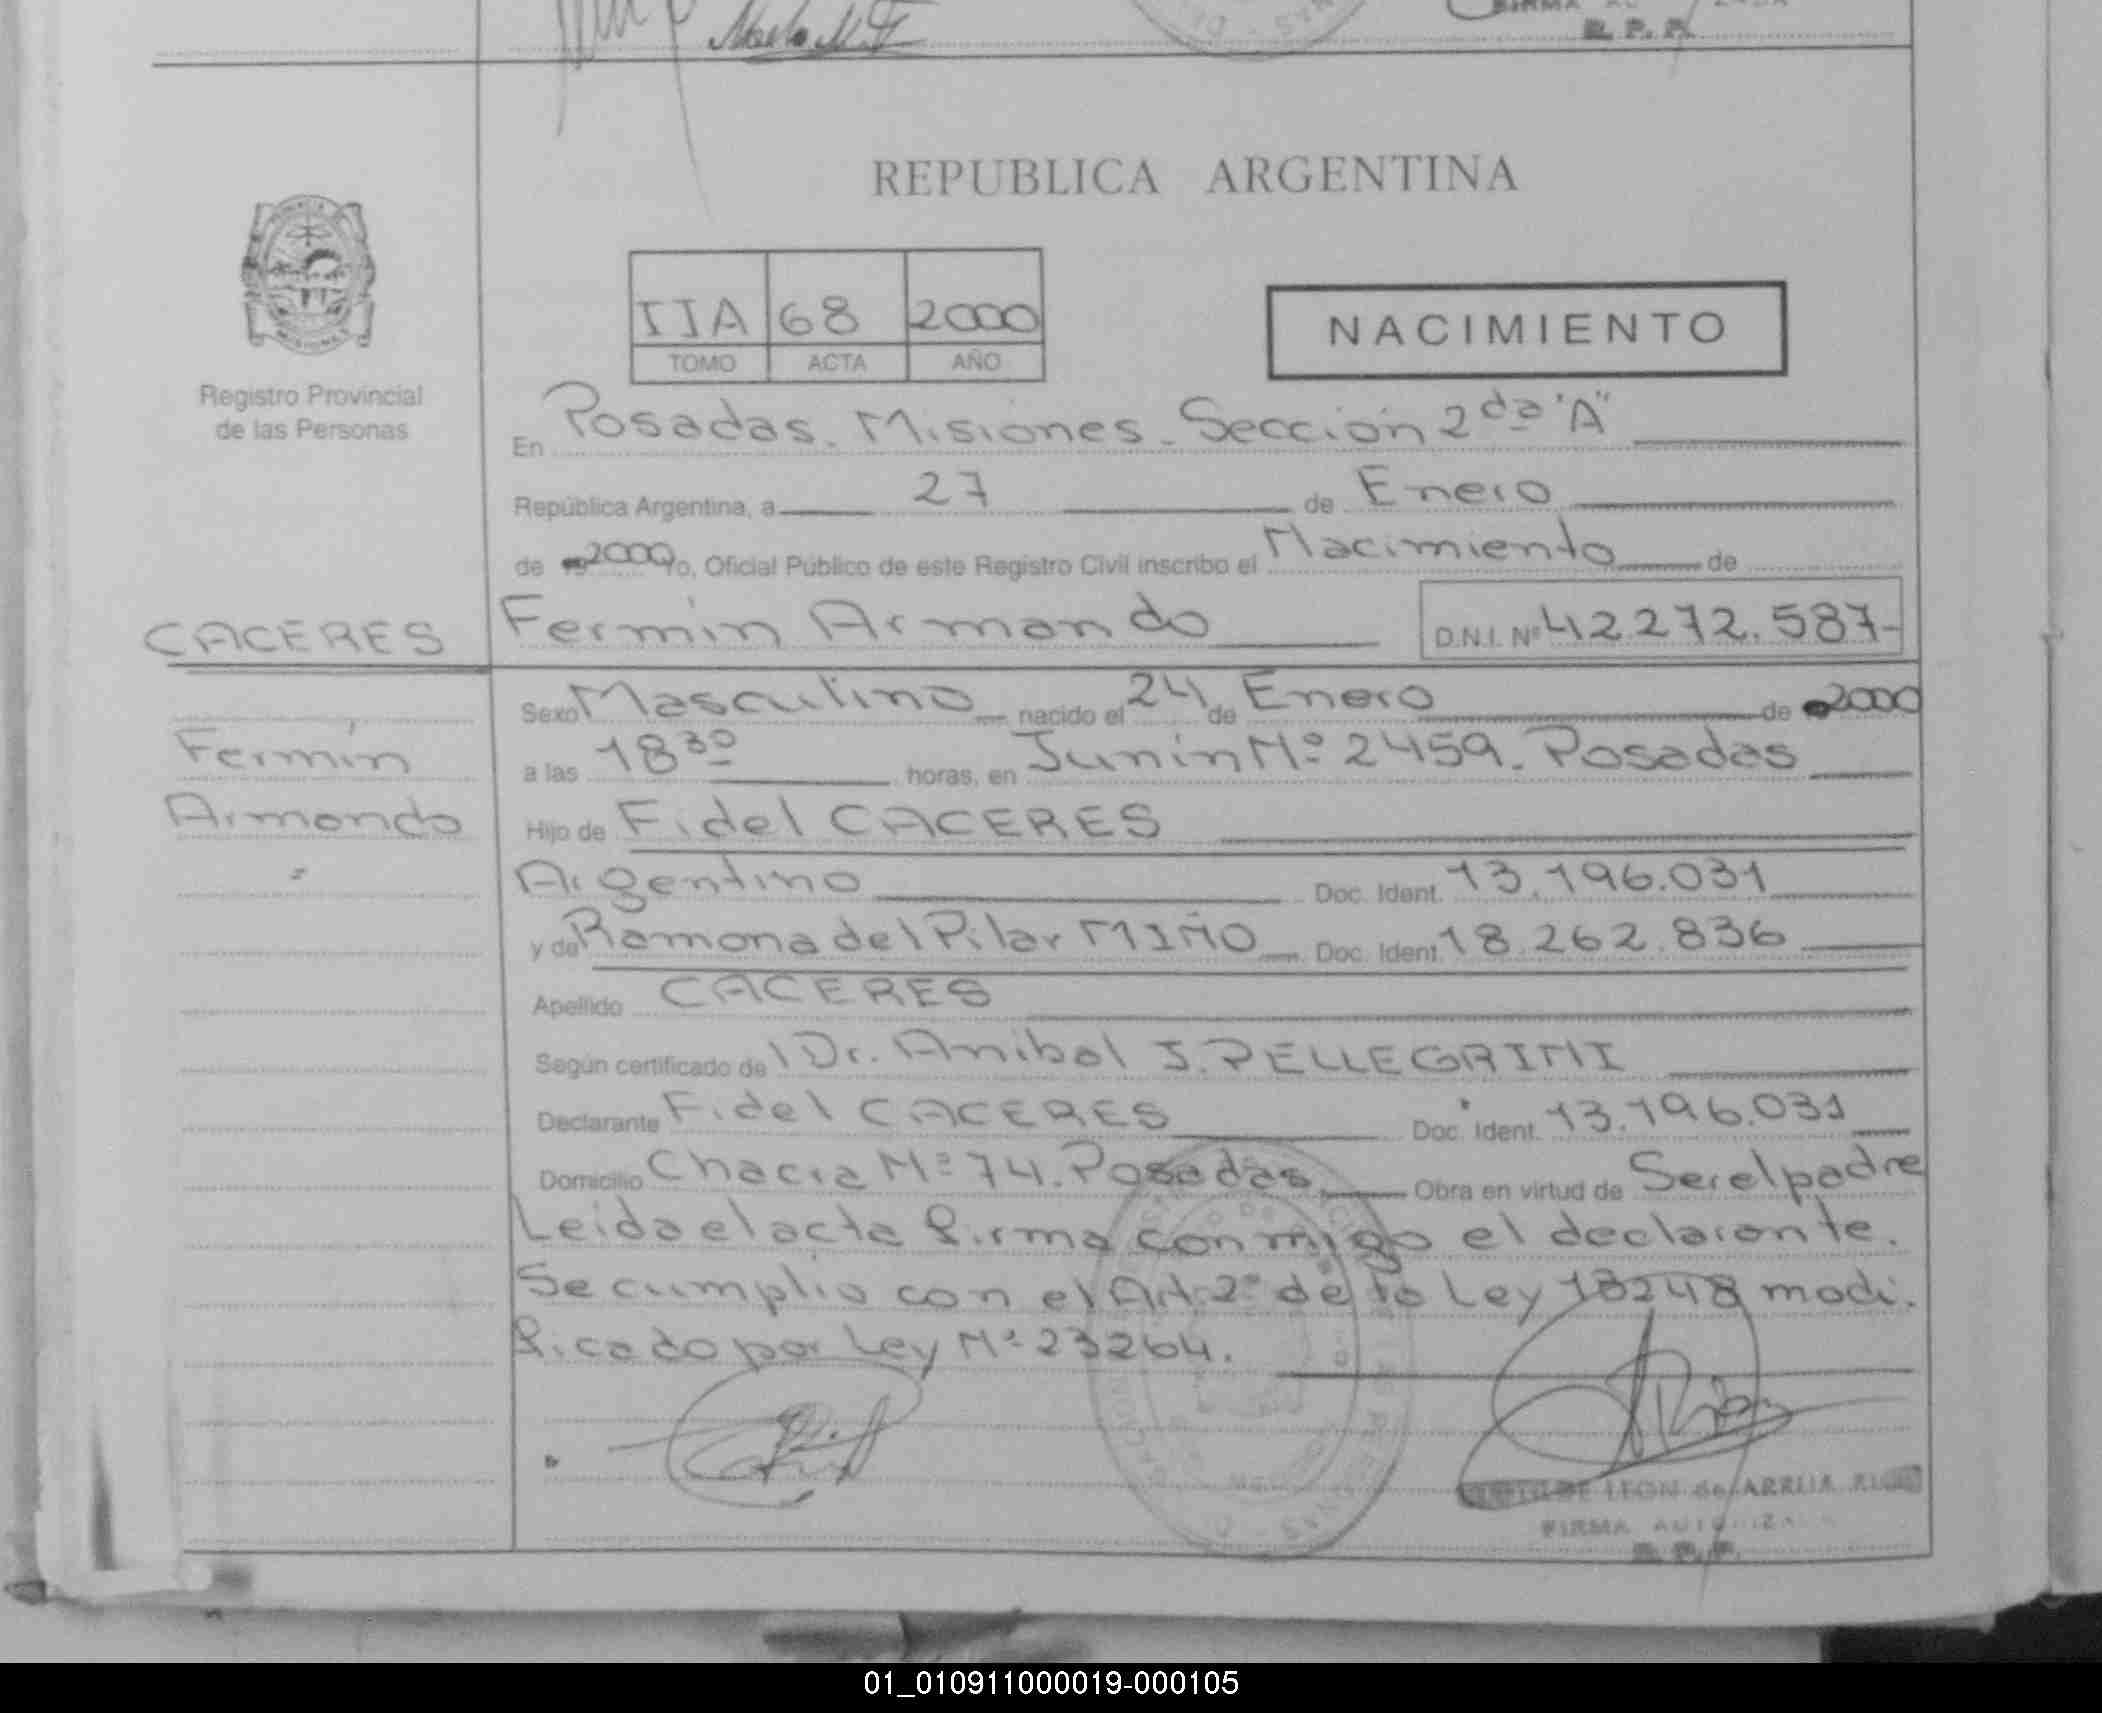 R. P. P.
REPUBLICA ARGENTINA
IIA 68 2000
TOMO ACTA AÑO
NACIMIENTO
Registro Provincial
de las Personas
En Posadas. Misiones. Sección 2da "A"
República Argentina, a 27 de Enero
de 2000 yo, Oficial Público de este Registro Civil inscribo el Nacimiento de
CACERES
Fermín Armando D.N.I. Nº 42.272.587-
Fermín
Armando
Sexo Masculino nacido el 24 de Enero de 2000
a las 18 30 horas, en Junín Nº 2459. Posadas
Hijo de Fidel CACERES
Argentino Doc. Ident. 13.196.031
y de Ramona del Pilar MIÑO Doc. Ident. 18.262.836
Apellido CACERES
Según certificado del Dr. Anibal J. PELLEGRINI
Declarante Fidel CACERES Doc. Ident. 13.196.031
Domicilio Chacra Nº 74. Posadas Obra en virtud de Ser el padre
Leida el acta firma conmigo el declarante.
Se cumplio con el Art. 2º de la Ley 18248 modi.
ficado por Ley Nº 23264.
LEON de ARRUA
FIRMA
R. P. P.
01_010911000019-000105